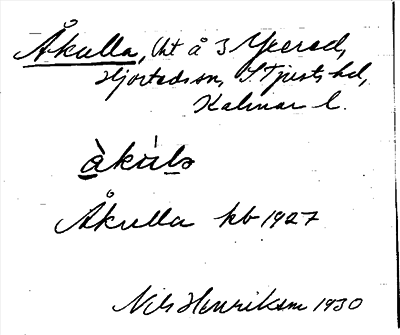 Åkulla, lht å 3 Yxered,
Hjorteds sn, S Tjusts hd,
Kalmar l.
àkùlə
Åkulla kb 1927
Nils Henrikson 1930